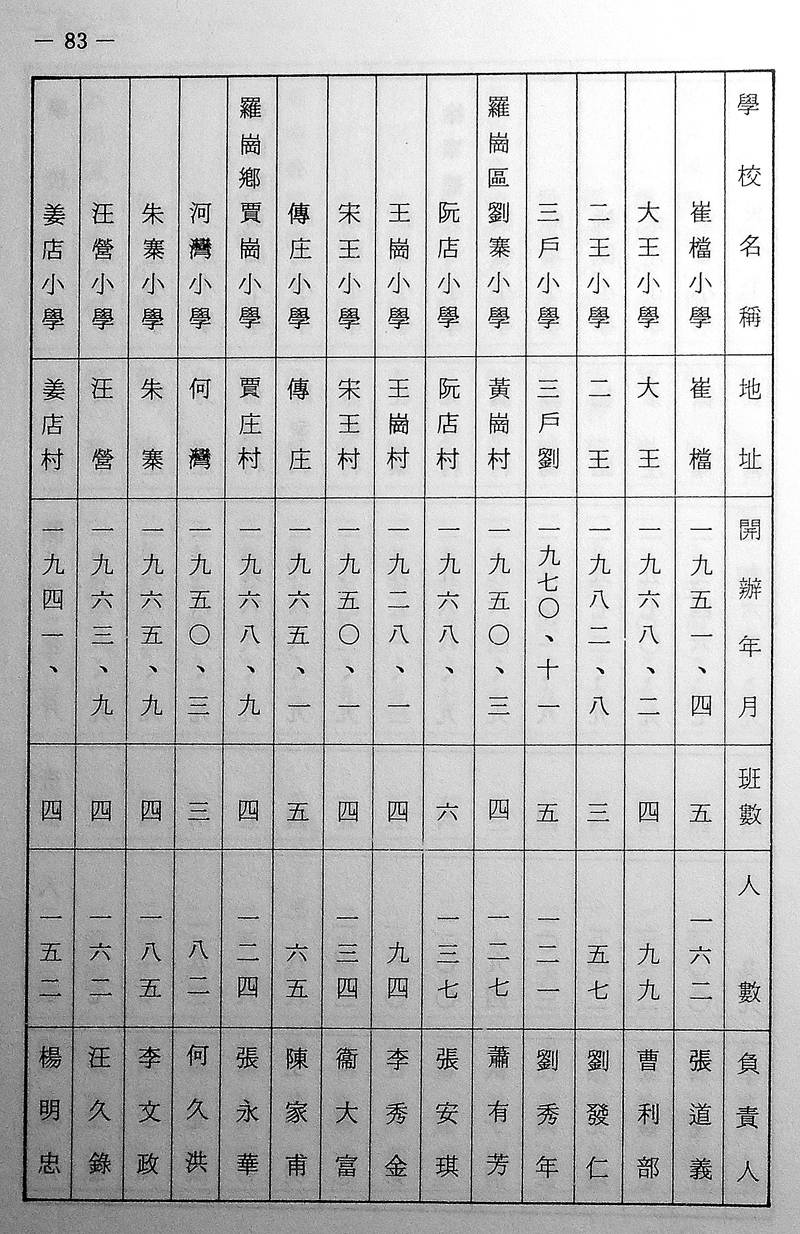 — 83 —
學校名稱 地址 開辦年月 班數 人數 負責人
崔檔小學 崔檔 一九五一、四 五 一六二 張道義
大王小學 大王 一九六八、二 四 九九 曹利部
二王小學 二王 一九八二、八 三 五七 劉發仁
三戶小學 三戶劉 一九七〇、十一 五 一二一 劉秀年
羅崗區劉寨小學 黃崗村 一九五〇、三 四 一二七 蕭有芳
阮店小學 阮店村 一九六八、 六 一三七 張安琪
王崗小學 王崗村 一九二八、一 四 九四 李秀金
宋王小學 宋王村 一九五〇、一 四 一三四 衞大富
傳庄小學 傳庄 一九六五、一 五 六五 陳家甫
羅崗鄉賈崗小學 賈庄村 一九六八、九 四 一二四 張永華
河灣小學 何灣 一九五〇、三 三 八二 何久洪
朱寨小學 朱寨 一九六五、九 四 一八五 李文政
汪營小學 汪營 一九六三、九 四 一六二 汪久錄
姜店小學 姜店村 一九四一、 四 一五二 楊明忠